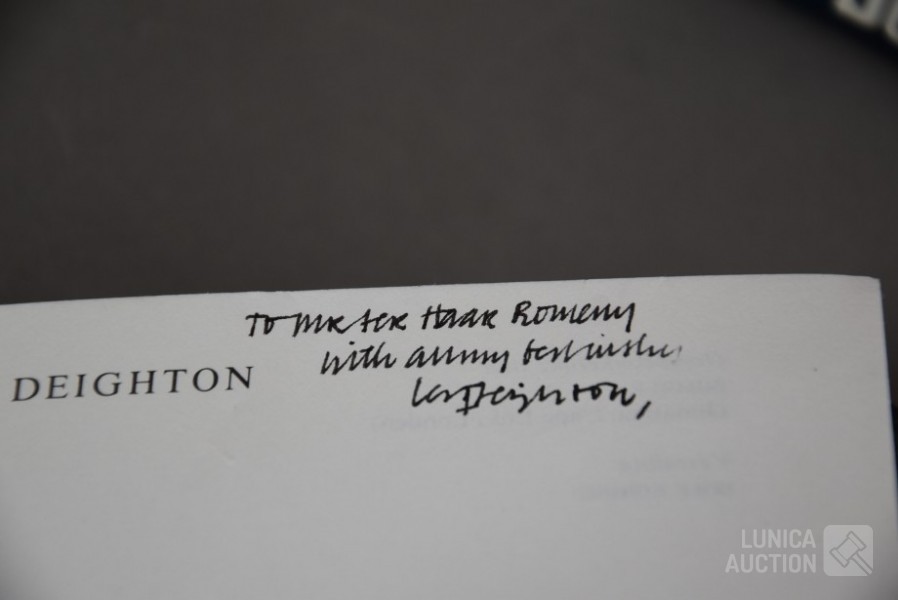 To Mr ter Haar Romeny
with all my best wishes
Len Deighton,
DEIGHTON
LUNICA
AUCTION